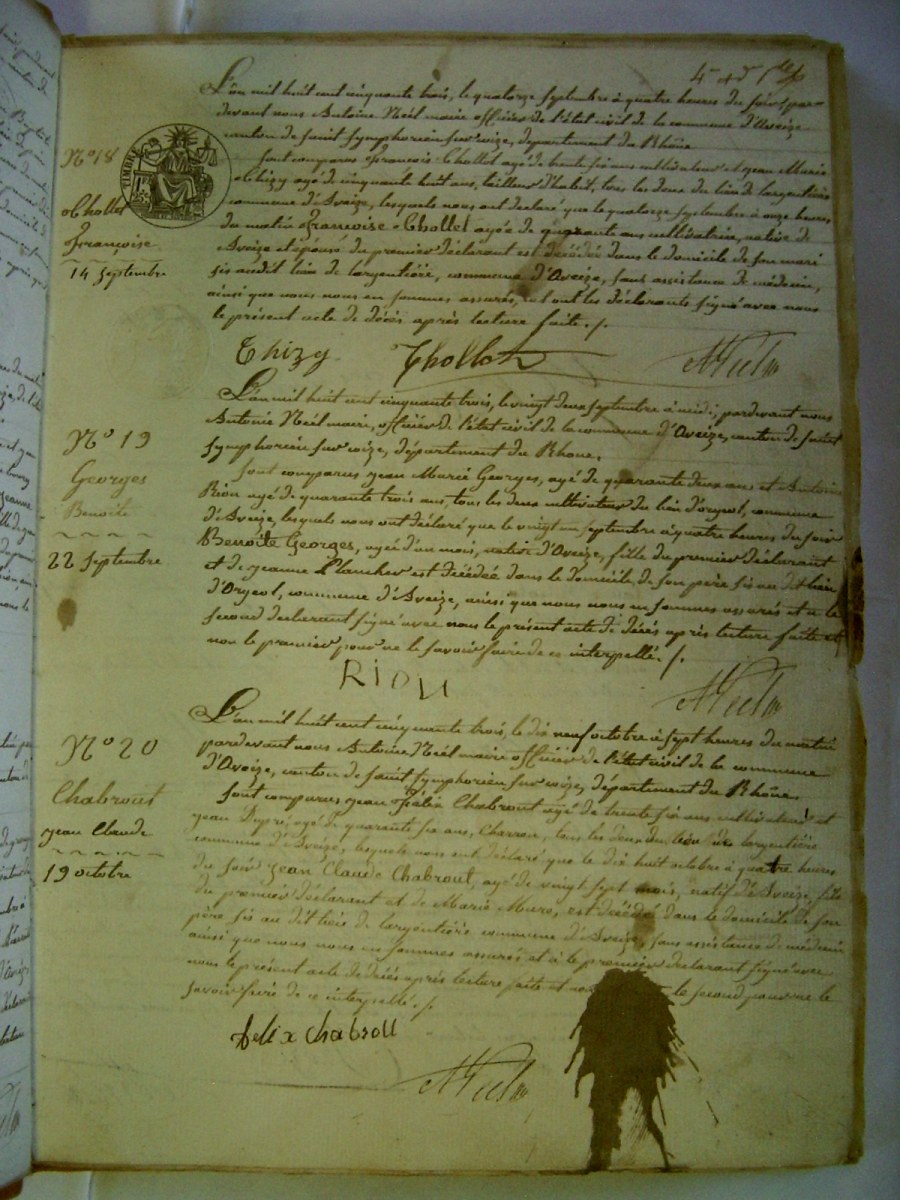 N° 18
Chollet
Françoise
14 Septembre
TIMBRE
L'an mil huit cent cinquante trois, le quatorze septembre à quatre heures du soir, par-
devant nous Antoine Néel maire officier de l'état civil de la commune d'Aveize
canton de saint symphorien sur coize, département du Rhône
sont comparus François Chollet agé de trente six ans cultivateur et jean Marie
Thizy agé de cinquante huit ans, tailleur d'habit, tous les deux du lieu de largentière
commune d'Aveize, lesquels nous ont déclaré que le quatorze septembre à onze heures
du matin Françoise Chollet agée de quarante ans cultivatrice, native de
Aveize et épouse du premier déclarant est décédée dans le domicile de son mari
sis audit lieu de largentière, commune d'Aveize, sans assistance de médecin,
ainsi que nous nous en sommes assurés, et ont les déclarants signé avec nous
le présent acte de décès après lecture faite ./.
Thizy Chollet A Néel m
N° 19
Georges
Benoite
22 Septembre
L'an mil huit cent cinquante trois, le vingt deux septembre à midi, pardevant nous
Antoine Néel maire, officier de l'état civil de la commune d'Aveize, canton de saint
symphorien sur coize, département du Rhone.
sont comparus jean Marie Georges, agé de quarante deux ans et Antoine
Riou agé de quarante trois ans, tous les deux cultivateurs du lieu d'orgeol, commune
d'Aveize, lesquels nous ont déclaré que le vingt un septembre à quatre heures du soir
Benoîte Georges, agée d'un mois, native d'Aveize, fille du premier déclarant
et de jeanne Plancher est décédée dans le domicile de son père sis au dit lieu
d'Orgeol, commune d'Aveize, ainsi que nous nous en sommes assurés et a le
second déclarant signé avec nous le présent acte de décès après lecture faite et
non le premier pour ne le savoir faire de ce interpellé ./.
RIOU A Néel m
N° 20
Chabrout
jean Claude
19 octobre
L'an mil huit cent cinquante trois, le dix neuf octobre à sept heures du matin
pardevant nous Antoine Néel maire officier de l'état civil de la commune
d'Aveize, canton de saint symphorien sur coize, département du Rhône
sont comparus jean Félix Chabrout agé de trente six ans cultivateur et
jean Dupré, agé de quarante six ans, Charron, tous les deux du lieu de largentière
commune d'Aveize, lesquels nous ont déclaré que le dix huit octobre à quatre heures
du soir jean Claude Chabrout, agé de vingt sept mois, natif d'Aveize, fils
du premier déclarant et de Marie Mure, est décédé dans le domicile de son
père sis au dit lieu de largentière commune d'Aveize, sans assistance de médecin
ainsi que nous nous en sommes assurés et à le premier déclarant signé avec
nous le présent acte de décès après lecture faite et non le second pour ne le
savoir faire de ce interpellé ./.
felix chabroll
A Néel m